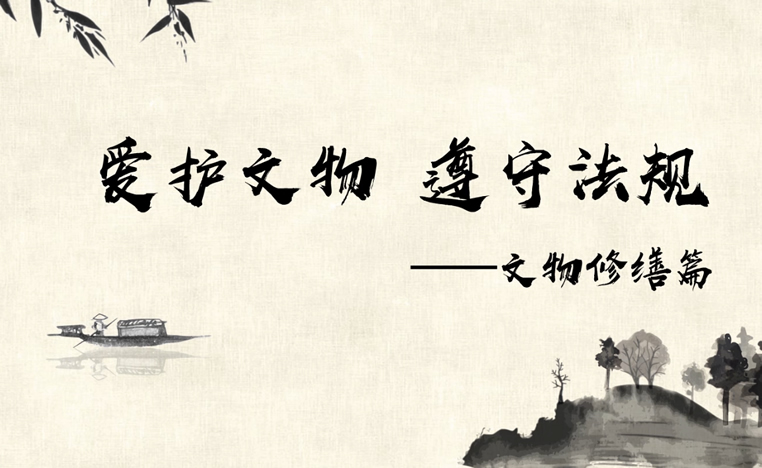 爱护文物 遵守法规
——文物修缮篇